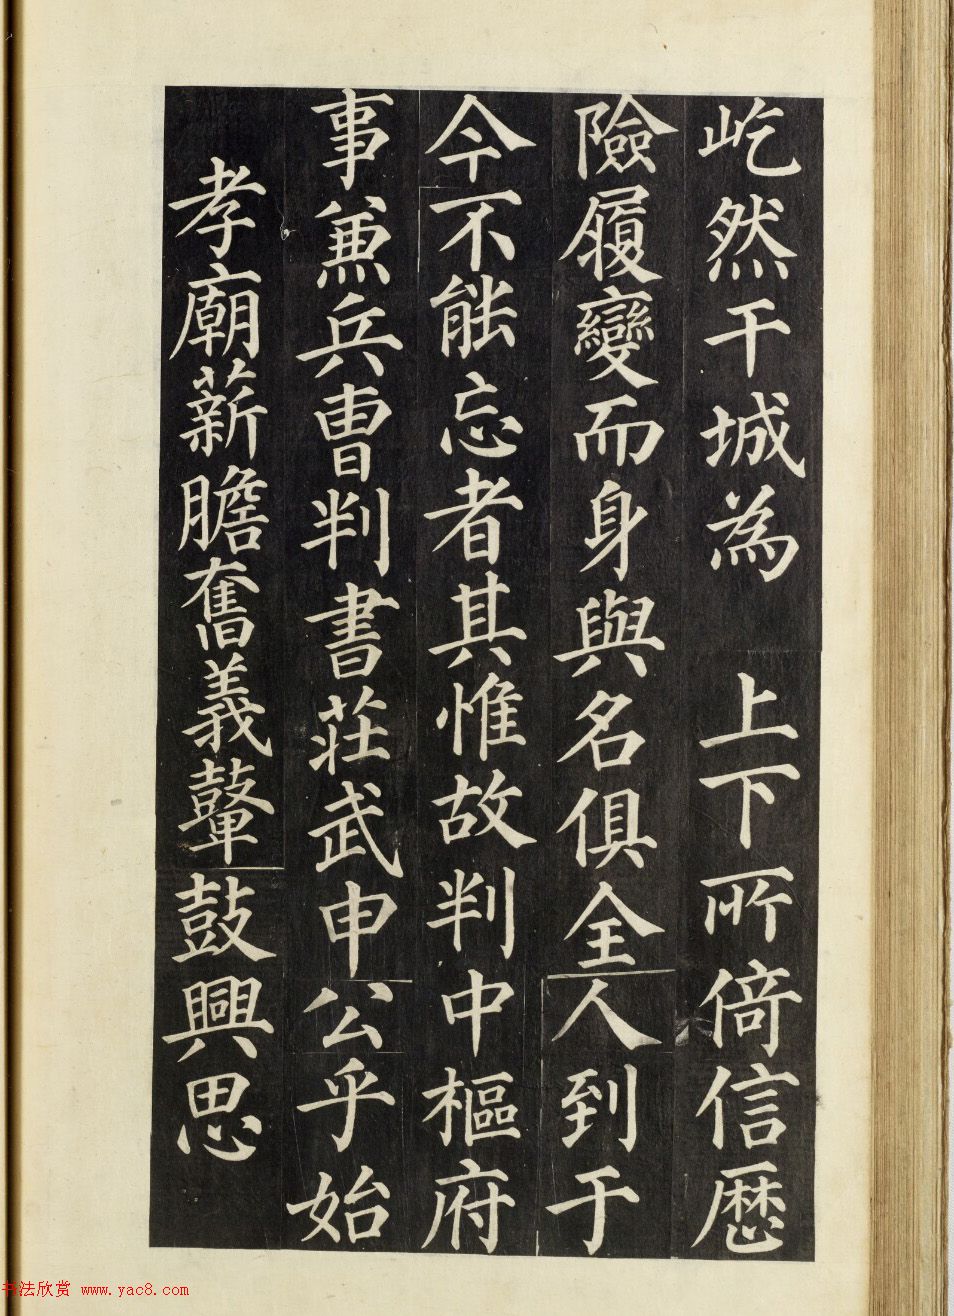 屹然干城為 上下所倚信歷
險履變而身與名俱全人到于
今不能忘者其惟故判中樞府
事兼兵曹判書莊武申公乎始
孝廟薪膽奮義鼙鼓興思
书法欣赏 www.yac8.com